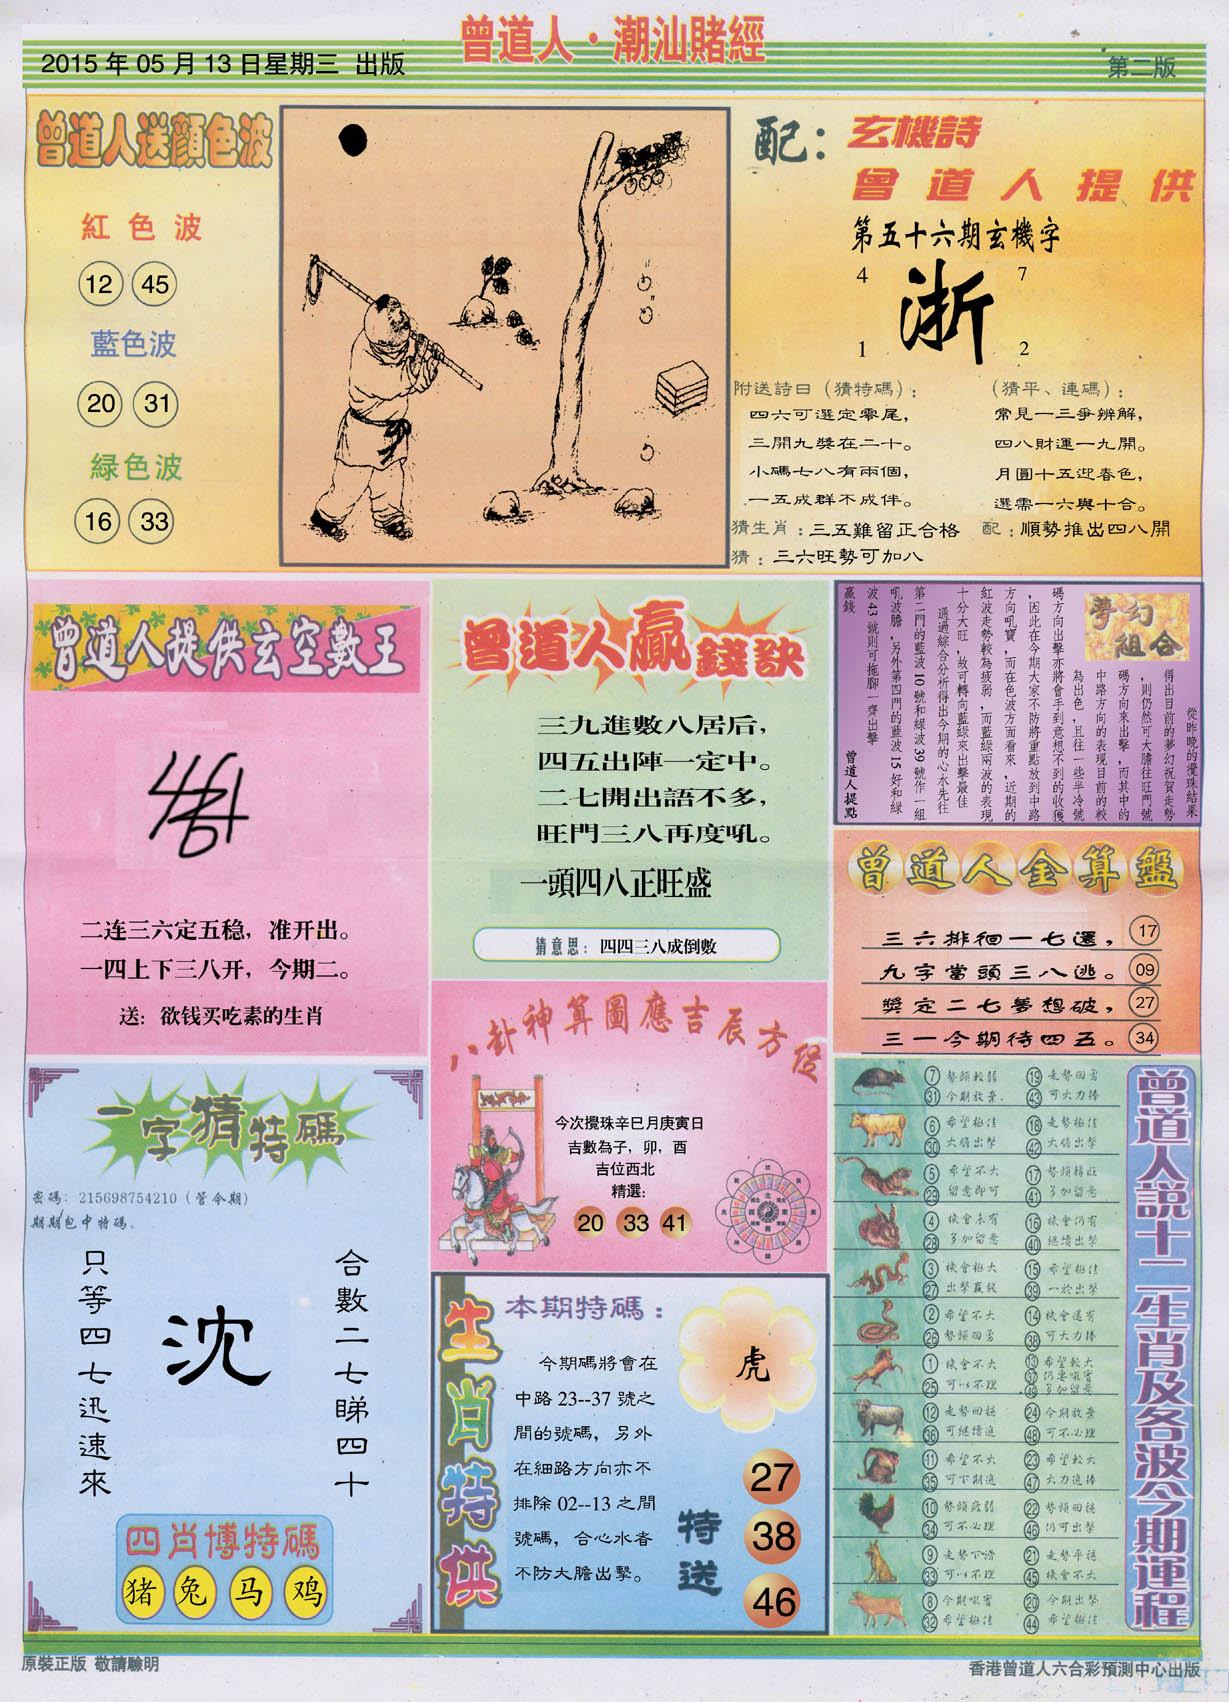 曾道人·潮汕賭經
2015 年 05 月 13 日星期三 出版
第二版
曾道人送顔色波
紅色波
12 45
藍色波
20 31
緑色波
16 33
配：
玄機詩
曾道人提供
第五十六期玄機字
4 7
浙
1 2
附送詩曰（猜特碼）：
四六可選定零尾，
三開九獎在二十。
小碼七八有兩個，
一五成群不成伴。
（猜平、連碼）：
常見一三爭辨解，
四八財運一九開。
月圓十五迎春色，
選需一六與十合。
猜生肖：三五難留正合格
配：順勢推出四八開
猜：三六旺勢可加八
曾道人提供玄空數王
二连三六定五稳，准开出。
一四上下三八开，今期二。
送：欲钱买吃素的生肖
曾道人贏錢訣
三九進數八居后，
四五出陣一定中。
二七開出語不多，
旺門三八再度吼。
一頭四八正旺盛
猜意思：四四三八成倒數
夢幻組合
從昨晚的攪珠結果
得出目前的夢幻祝賀走勢
，則仍然可大膽往旺門號
碼方向來出擊，而其中的
中路方向的表現目前的較
為出色，且往一些半冷號
碼方向出擊亦將會手到意想不到的收獲
，因此在今期大家不防將重點放到中路
方向吼寶，而在色波方面看來，近期的
紅波走勢較為疲弱，而藍綠兩波的表現
十分大旺，故可轉向藍綠來出擊最佳
通過綜合分析得出今期的心水先往
第二門的藍波 10 號和綠波 39 號作一組
吼波膽，另外第四門的藍波 15 好和綠
波 43 號則可拖腳一齊出擊
贏錢
曾道人提點
曾道人金算盤
三六排徊一七選， 17
九字當頭三八逃。 09
獎定二七夢想破， 27
三一今期待四五。 34
八卦神算圖應吉辰方位
今次攪珠辛巳月庚寅日
吉數為子，卯，酉
吉位西北
精選：
20 33 41
一字猜特碼
密碼：215698754210（管令期）
期期包中特碼。
合數二七睇四十
沈
只等四七迅速來
四肖博特碼
猪 兔 马 鸡
生肖特供
本期特碼：
今期碼將會在
中路 23--37 號之
間的號碼，另外
在細路方向亦不
排除 02--13 之間
號碼，合心水者
不防大膽出擊。
虎
特送
27
38
46
曾道人説十二生肖及各波今期運程
7 勢頭較弱 19 走勢回勇
31 今期放棄. 43 可大力捧
6 希望極佳 18 走勢極佳
30 大膽出擊 42 大膽出擊
5 希望不大 17 勢頭轉旺
29 留意即可 41 多加留意
4 機會未有 16 機會仍有
28 多加留意 40 繼續出擊
3 機會極大 15 希望極佳
27 出擊贏錢 39 一於出擊
2 希望不大 14 機會還有
26 勢頭回勇 38 可大力捧
1 機會不大 13 希望較大
25 可以不理 37 仍要吼實
49 多加留意
12 走勢回穩 24 今期放棄
36 可繼續追 48 可不必理
11 希望不大 23 希望較大
35 可下期追 47 大力追捧
10 勢頭疲弱 22 勢頭回穩
34 可不必理 46 仍可出擊
9 走勢下滑 21 走勢平穩
33 可以不理 45 機會不大
8 今期吼實 20 今期出擊
32 希望極佳 44 希望極佳
原裝正版 敬請驗明
香港曾道人六合彩預測中心出版